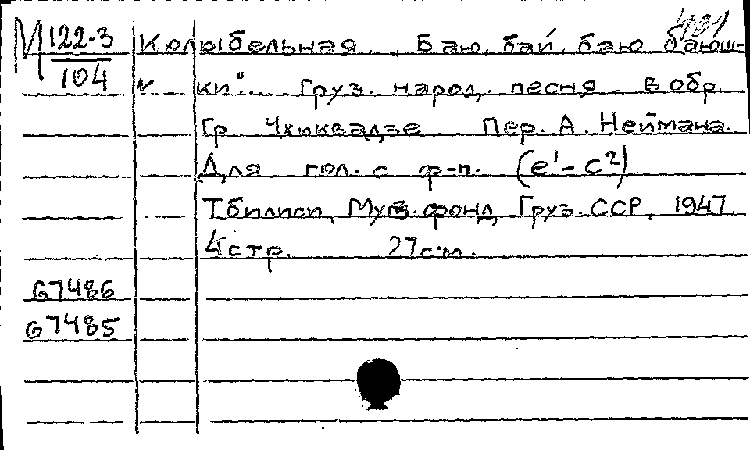 М 122-3 Колыбельная. „Баю, бай, баю баюш-
104 ки“... Груз. народ. песня в обр.
Гр. Чхиквадзе Пер. А. Неймана.
Для гол. с ф-п. (e¹-c²)
Тбилиси, Муз. фонд Груз. ССР, 1947
4 стр. 27 см.
67486
67485